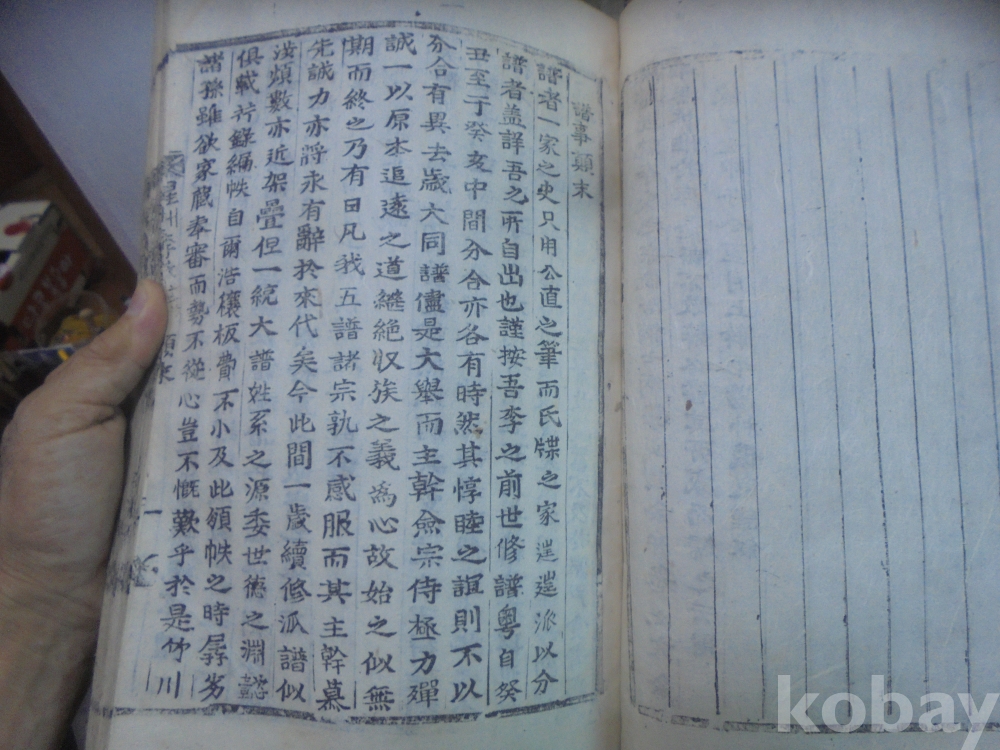 譜事顚末
譜者一家之史只用公直之筆而氏牒之家逞逞派以分
譜者盖詳吾之所自出也謹按吾李之前世修譜粤自癸
丑至于癸亥中間分合亦各有時然其惇睦之誼則不以
分合有異去歲大同譜儘是大擧而主幹僉宗侍極力殫
誠一以原本追遠之道繼絶収族之義爲心故始之似無
期而終之乃有日凡我五譜諸宗孰不感服而其主幹慕
先誠力亦將永有辭於來代矣今此間一歲續修派譜似
涉煩數亦近架疊但一統大譜姓系之源委世德之淵懿
俱載幷錄編帙自爾浩穰板費不小及此頒帙之時孱劣
諸孫雖欲家藏奉審而勢不從心豈不慨歎乎於是竹川
星州李
末
一
kobay